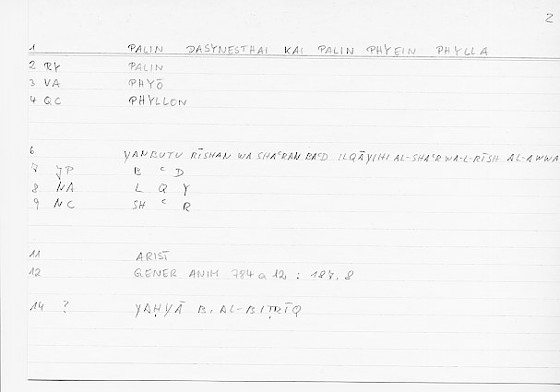 2
1 PALIN DASYNESTHAI KAI PALIN PHYEIN PHYLLA
2 RY PALIN
3 VA PHYŌ
4 QC PHYLLON
6 YANBUTU RĪSHAN WA SHAᶜRAN BAᶜD ILQĀYIHI AL-SHAᶜR WA-L-RĪSH AL-AWWA
7 JP B ᶜ D
8 NA L Q Y
9 NC SH ᶜ R
11 ARIST
12 GENER ANIM 784 a 12 : 187, 8
14 ? YAḤYĀ B. AL-BIṬRĪQ